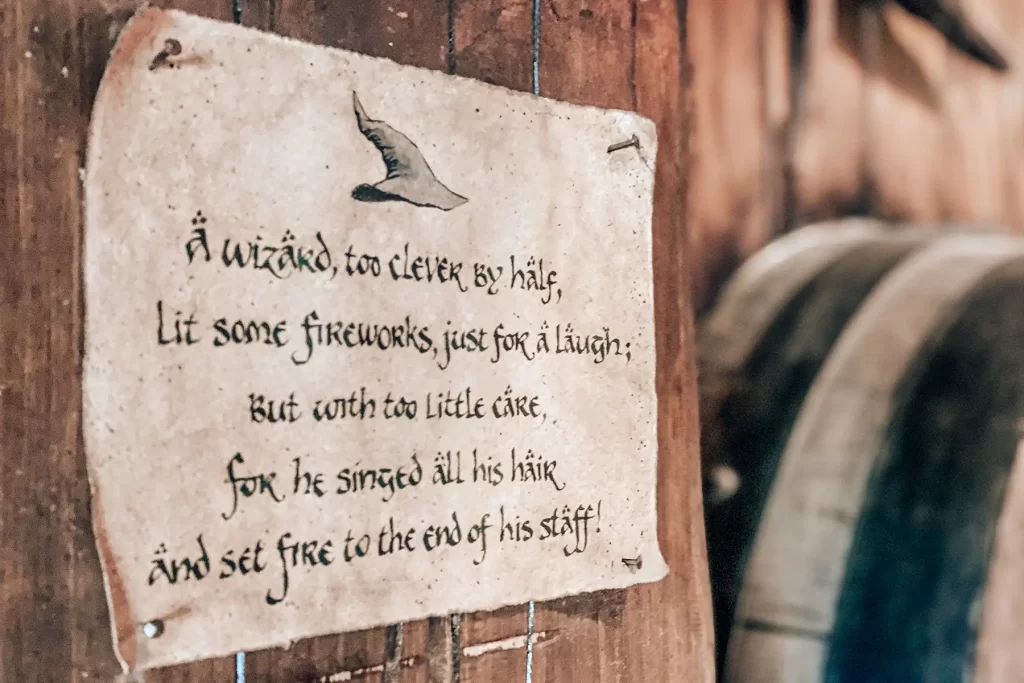 A wizard, too clever by half,
Lit some fireworks, just for a laugh;
But with too little care,
for he singed all his hair
and set fire to the end of his staff!